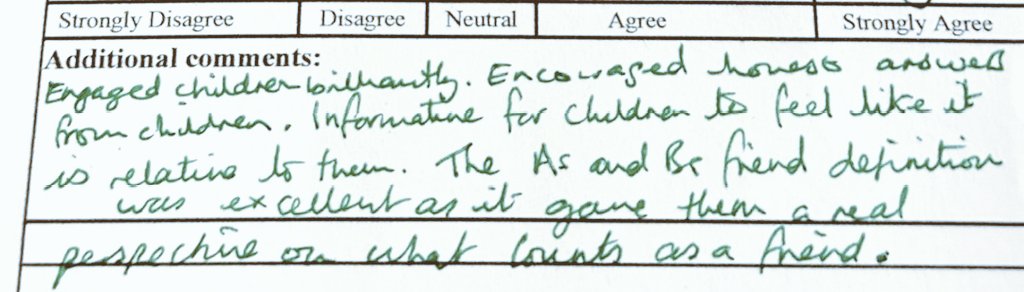 Strongly Disagree Disagree Neutral Agree Strongly Agree
Additional comments:
Engaged children brilliantly. Encouraged honest answers
from children. Informative for children to feel like it
is relative to them. The As and Bs friend definition
was excellent as it gave them a real
perspective on what counts as a friend.